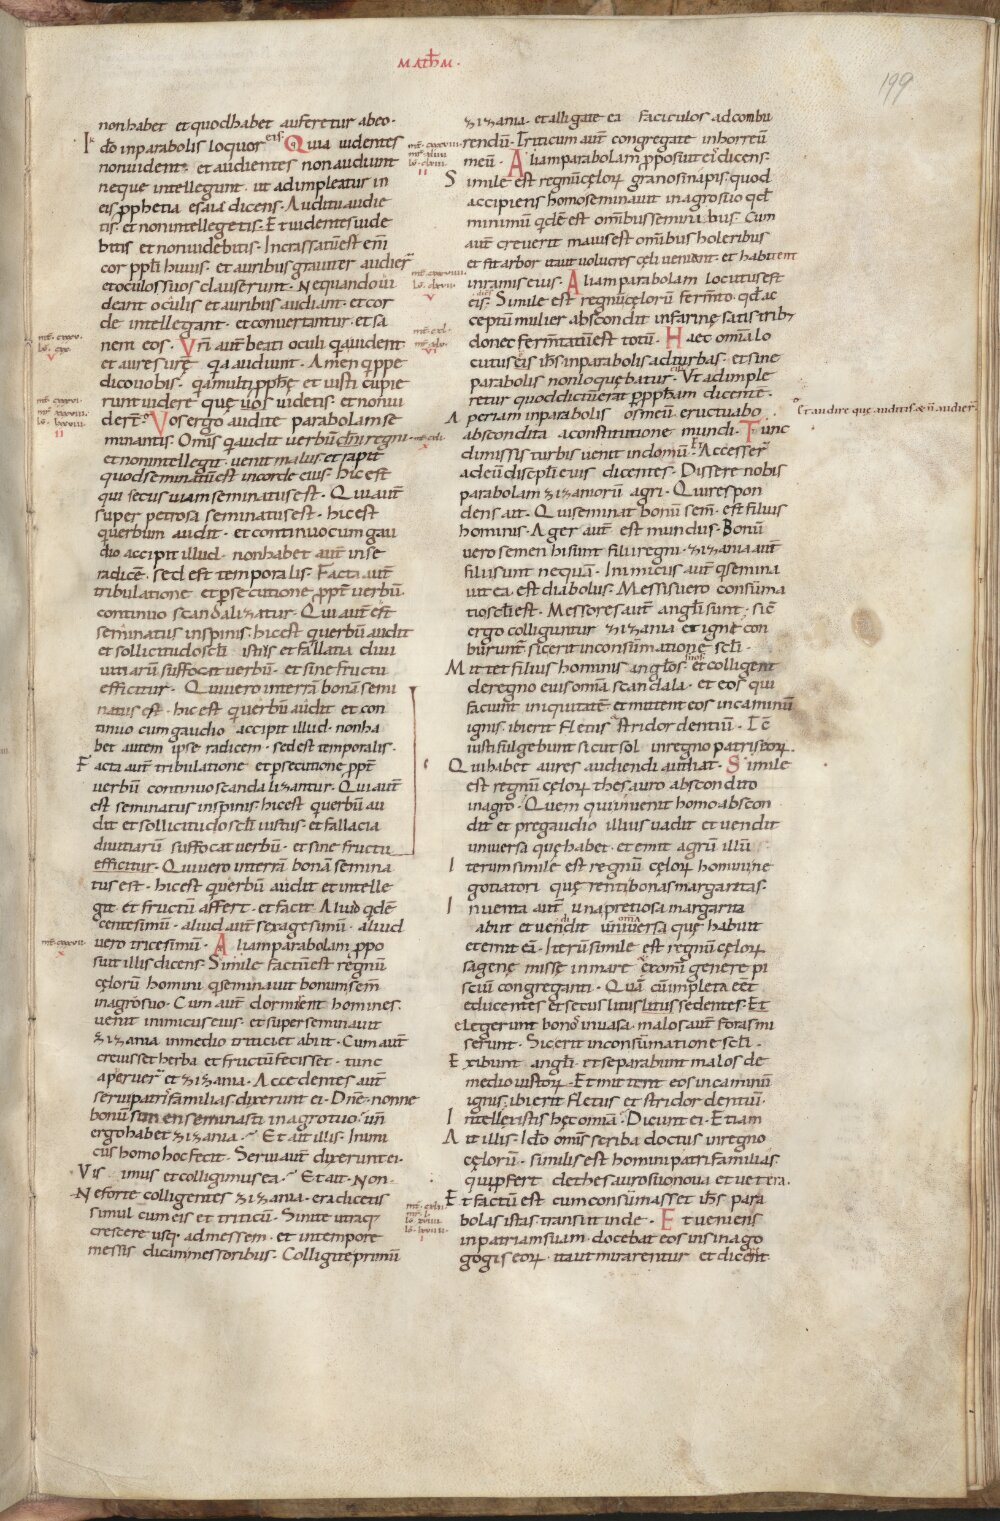 MATHM·
199
non habet et quod habet auferetur ab eo·
Ido in parabolis loquor eis· Quia uidentes
non uident· et audientes non audiunt
neque intellegunt· ut adimpleatur in
eis p̄phetia esaiæ dicens· Auditu audie
tis· et non intellegetis· Et uidentes uide
bitis et non uidebitis· Incrassatū est eni᷒
cor pp̄li huius· et auribus grauiter audier̄
et oculos suos clauserunt· Nequando ui
deant oculis et auribus audiant· et cor
de intellegant· et conuertantur· et sa
nem eos· Vr̄i aut̄ beati oculi q̄a uident·
et aures ur̄ę q̄a audiunt· Amen q̄ppe
dico uobis· q̄a multi p̄phę et iusti cupie
runt uidere quę uos uidetis· et non ui
der̄t· Vos ergo audite parabolam se
minantis· Omīs q̄ audit uerbū dn̄i regni·
et non intellegit· uenit malus· et rapit
quod seminatū est in corde eius· hic est
qui secus uiam seminatus est· Qui aut̄
super petrosa seminatus est· hic est
qui uerbum audit· et continuo cum gau
dio accipit illud· non habet aut̄ in se
radicē· sed est temporalis· Facta aut̄
tribulatione et p̄secutione p̄pt̄ uerbū·
continuo scandalizatur· Qui aut̄ est
seminatus in spinis· hic est q̄ uerbū audit
et sollicitudo sc̄li istius et fallatia diui
tiarū suffocat uerbū· et sine fructu
efficitur· Qui uero in terrā bonā semi
natus est· hic est q̄ uerbū audit et con
tinuo cum gaudio accipit illud· non ha
bet autem ipse radicem· sed est temporalis·
Facta aut̄ tribulatione et p̄secutione p̄pt̄
uerbū continuo scandalizantur· Qui aut̄
est seminatus in spinis· hic est q̄ uerbū au
dit et sollicitudo sc̄li istius· et fallacia
diuitiarū suffocat uerbū· et sine fructu
efficitur· Qui uero in terrā bonā semina
tus est· hic est q̄ uerbū audit et intelle
git· et fructū affert· et facit Aliud q̄dē
centesimū· aliud aut̄ sexagesimū· aliud
uero tricesimū· Aliam parabolam p̄po
suit illis dicens· Simile factū est regnū
cęlorū homini q̄ seminauit bonum sem̄
in agro suo· Cum aut̄ dormirent homines·
uenit inimicus eius· et superseminauit
zizania in medio tritici et abiit· Cum aut̄
creuisset herba et fructū fecisset· tunc
aperuer̄ et zizania· Accedentes aut̄
serui patris familias dixerunt ei· Dn̄e· nonne
bonū semen seminasti in agro tuo· un̄
ergo habet zizania· Et ait illis· Inimi
cus homo hoc fecit· Serui aut̄ dixerunt ei·
Vis imus et colligimus ea· Et ait· Non·
Ne forte colligentes zizania· eradicetis
simul cum eis et triticū· Sinite utraq;
crescere usq; ad messem· et in tempore
messis dicam messoribus· Colligite primū
zizania· et alligate ea fasciculos ad combu
rendū· Triticum aut̄ congregate in horreū
meū· Aliam parabolam p̄posuit eis dicens·
Simile est regnū cęlorꝝ grano sinapis· quod
accipiens homo seminauit in agro suo qd̄
minimū q̄dē est omībus seminibus· Cum
aut̄ creuerit maius est omībus holeribus
et fit arbor ita ut uolucres cęli ueniant· et habitent
in ramis eius· Aliam parabolam locutus est
eis· Simile est regnū cęlorū ferm̄to· qd̄ ac
ceptū mulier abscondit in farinę satis trib;
donec ferm̄tatū est totū· Haec omīa lo
cutus ē ih̄s in parabolis ad turbas· et sine
parabolis non loquębatur· Vt adimple
retur quod dictū erat per pp̄ham dicentē·
Aperiam in parabolis os meū· eructuabo
abscondita a constitutione mundi· Tunc
dimissis turbis uenit in domū· Et Accesser̄
ad eū discipli eius dicentes· Dissere nobis
parabolam zizaniorū agri· Qui respon
dens ait· Qui seminat bonū sem̄· est filius
hominis· Ager aut̄ est mundus· Bonū
uero semen hi sunt filii regni· zizania aut̄
filii sunt nequā· Inimicus aut̄ q̄ semina
uit ea· est diabolus· Messis uero consūma
tio sc̄li est· Messores aut̄ angl̄i sunt· sic̄
ergo colliguntur zizania et igne con
burunt̄· sic erit in consūmatione sc̄li·
Mittet filius hominis anglos· suos et colligent
de regno eius omīa scandala· et eos qui
faciunt iniquitatē· et mittent eos in caminū
ignis· ibi erit fletus et stridor dentiū· Tc̄
iusti fulgebunt sicut sol in regno patris eorꝝ·
Qui habet aures audiendi audiat· Simile
est regnū cęlorꝝ thesauro abscondito
in agro· Quem qui inuenit homo abscon
dit et pre gaudio illius uadit et uendit
uniuersa quę habet· et emit agrū illū·
Iterum simile est regnū cęlorꝝ homini ne
gotiatori quęrenti bonas margaritas·
Inuenta aut̄ una pretiosa margarita
abiit et uendidit uniuersa quę habuit
et emit eā· Iterū simile est regnū cęlorꝝ
sagenę missę in mare et ex omī genere pi
sciū congreganti· Quā cū impleta eēt
educentes et secus litus litus sedentes· Et
elegerunt bonos in uasa· malos aut̄ foras mi
serunt· Sic erit in consūmatione sc̄li·
Exibunt angl̄i· et separabunt malos de
medio iustorꝝ· Et mittent eos in caminū
ignis· ibi erit fletus et stridor dentiū·
Intellexistis hęc omīa· Dicunt ei· Etiam
Ait illis· Ido omīs scriba doctus in regno
cęlorū· similis est homini patri familias·
qui p̄fert de thesauro suo noua et uetera·
Et factū est cum consūmasset ih̄s para
bolas istas transiit inde· Et ueniens
in patriam suam· docebat eos in sinago
gogis eorꝝ· ita ut mirarentur et dicer̄t·
Et audire que auditis & ñ audier̄